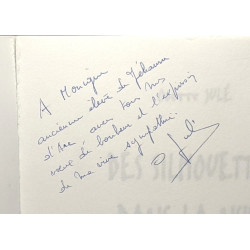 A Monique
ancienne élève de Jéhanne
d'Arc avec tous mes
vœux de bonheur et l'expression
de ma vive sympathie.
JULÉ
DES SILHOUETTES
DANS LA NUIT